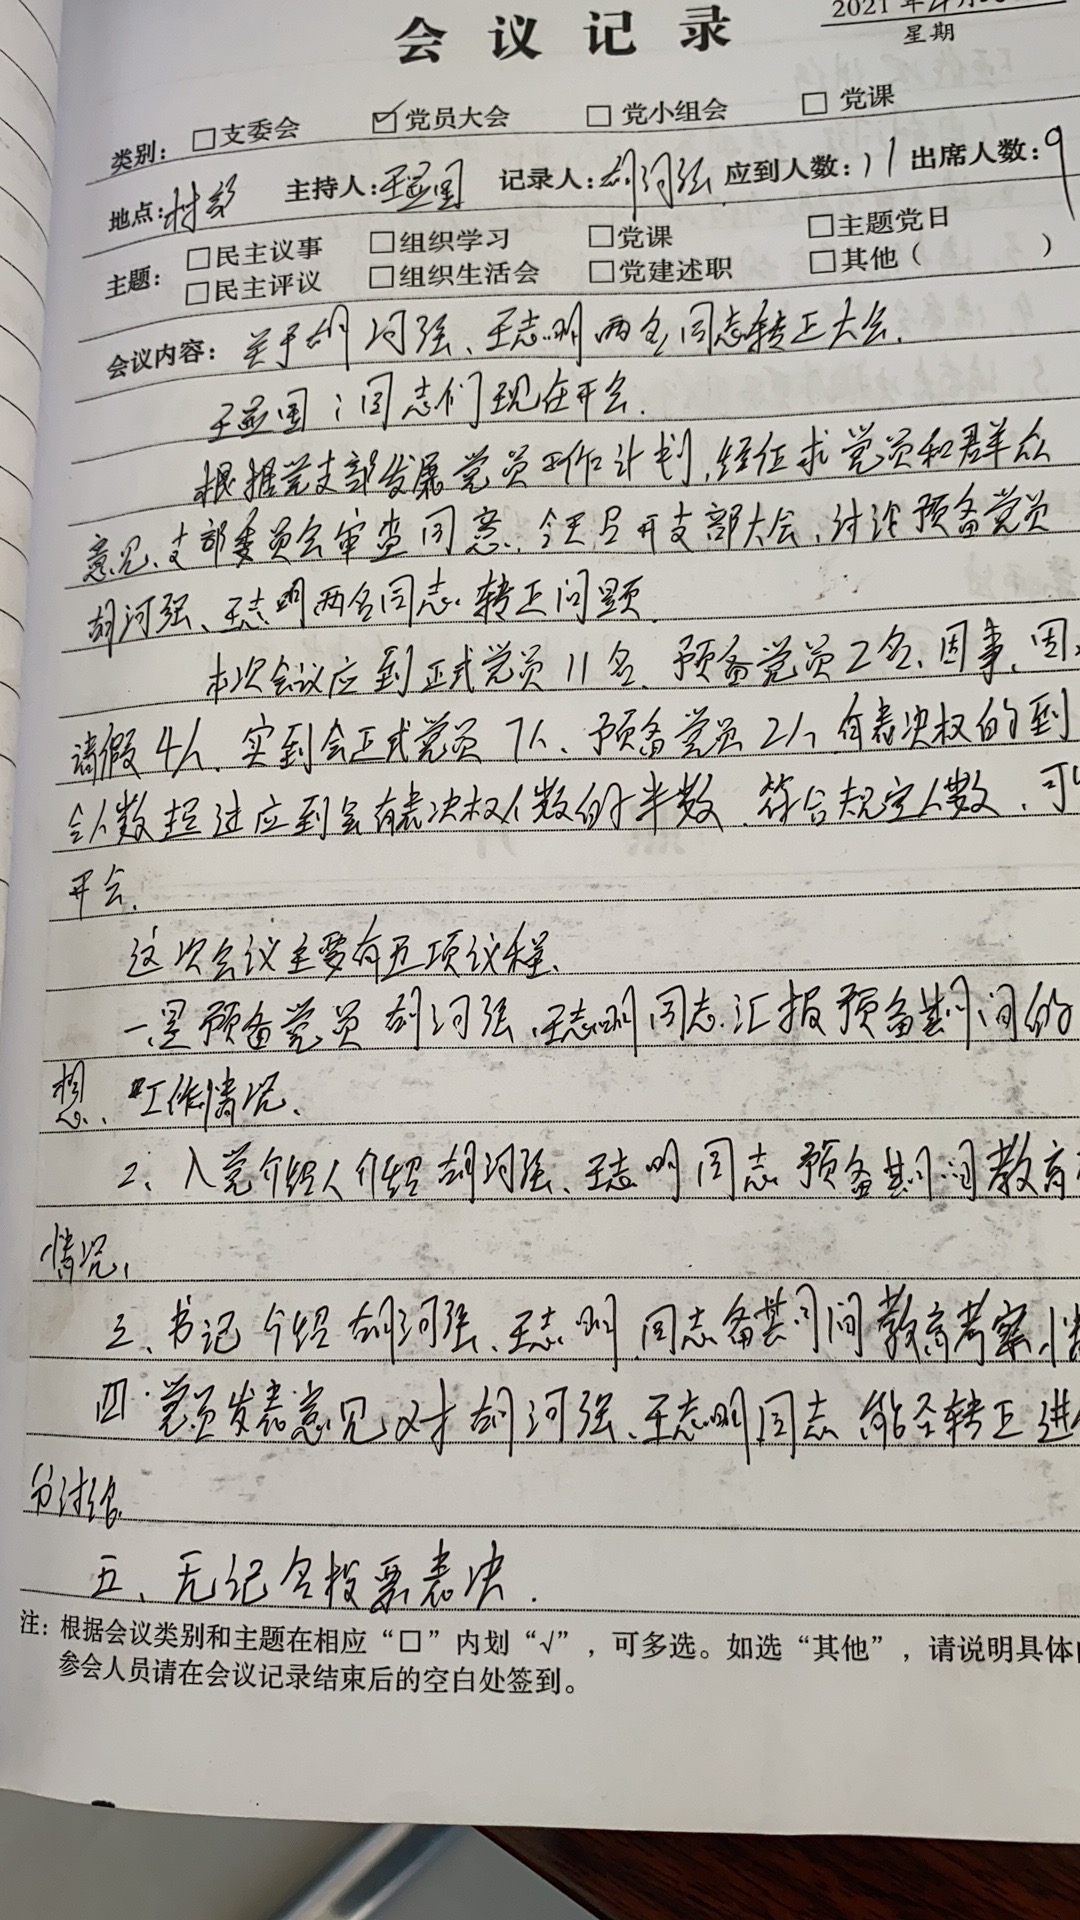 会议记录
2021年4月
星期
类别：□支委会 ☑党员大会 □党小组会 □党课
地点：村部 主持人：王亚国 记录人：胡河强 应到人数：11 出席人数：9
主题：□民主议事 □组织学习 □党课 □主题党日
□民主评议 □组织生活会 □党建述职 □其他（ ）
会议内容：关于胡河强、王志明两名同志转正大会.
王亚国：同志们现在开会.
根据党支部发展党员工作计划,经征求党员和群众
意见、支部委员会审查同意,今天召开支部大会,讨论预备党员
胡河强、王志明两名同志转正问题.
本次会议应到正式党员11名、预备党员2名、因事、因
请假4人、实到会正式党员7人、预备党员2人,有表决权的到
会人数超过应到会有表决权人数的半数、符合规定人数,可
开会.
这次会议主要有五项议程、
一是预备党员胡河强、王志明同志汇报预备期间的
想、工作情况、
2、入党介绍人介绍胡河强、王志明同志预备期间教育
情况、
三、书记介绍胡河强、王志明同志备其间教育考察、情
四.党员发表意见对胡河强、王志明同志能否转正进
分讨论
五、无记名投票表决.
注：根据会议类别和主题在相应“□”内划“√”，可多选。如选“其他”，请说明具体
参会人员请在会议记录结束后的空白处签到。